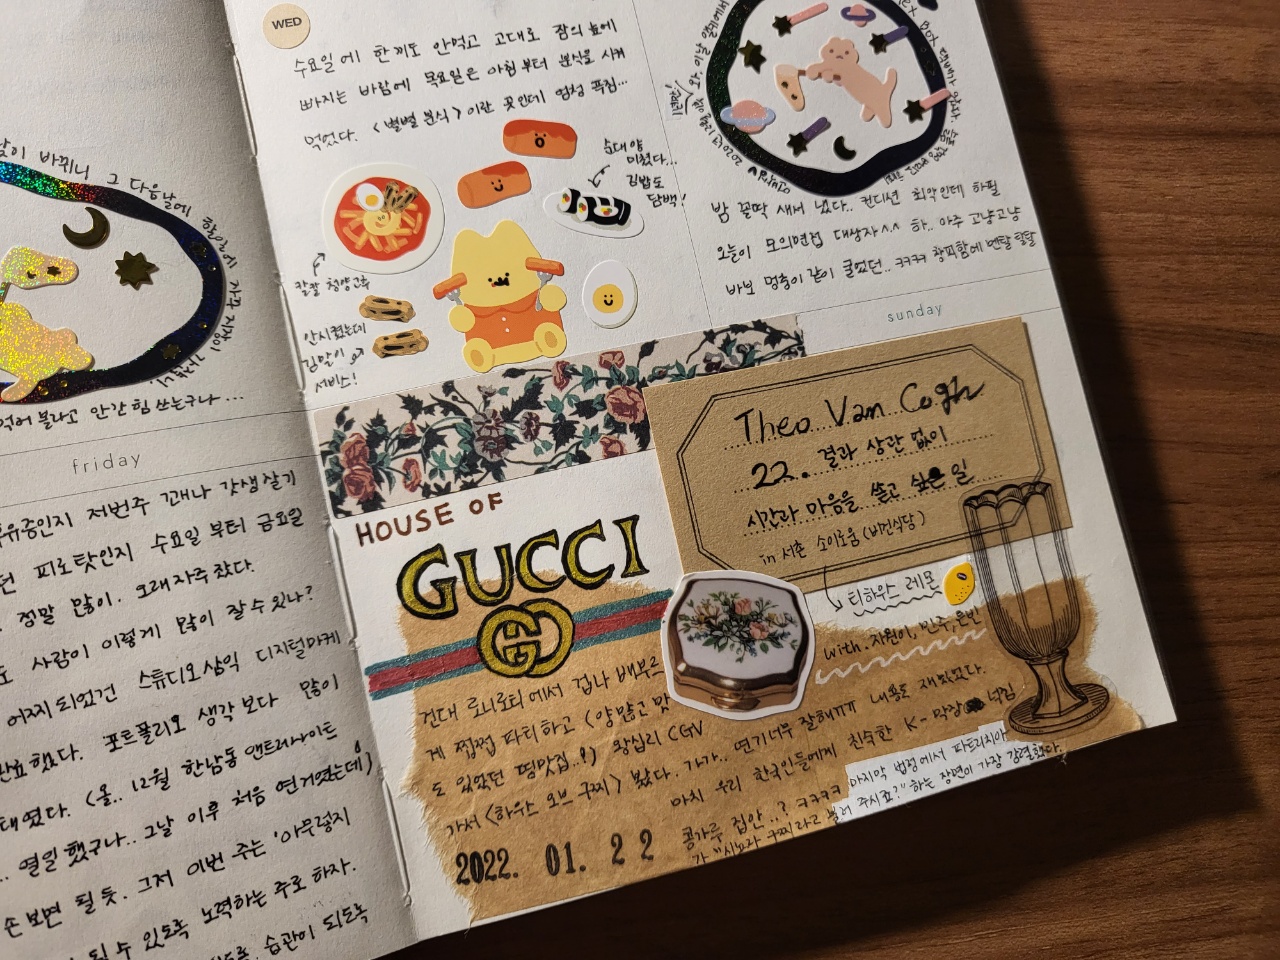 날이 바뀌니 그 다음날에
먹어 불라고 안간힘 쓰는구나...
friday
후유증인지 저번주 꽤나 갓생살기
피로탓인지 수요일 부터 금요일
정말 많이. 오래 자주 잤다.
사람이 이렇게 많이 잘 수 있나?
어찌 되었건 스튜디오 삼익 디지털마케
완료했다. 포트폴리오 생각보다 많이
태였다. (올.. 12월 한남동 앤트러사이트
.. 열일 했구나.. 그날 이후 처음 연거였는데)
손 보면 될 듯. 그저 이번 주는 '아무렇지
될 수 있도록 노력하는 주로 하자.
습관이 되도록
WED
수요일에 한끼도 안먹고 고대로 잠의 늪에
빠지는 바람에 목요일은 아침부터 분식을 시켜
먹었다. <별별 분식> 이란 곳인데 엄청 푸짐...
순대 양
미쳤다...
김밥도
담백!
칼칼 청양고추
안시켰는데
김말이
서비스!
밤 꼴딱 새서 냈다.. 컨디션 최악인데 하필
오늘이 모의면접 대상자^^ 하.. 아주 고냥고냥
바보 멍충이 같이 굴었던.. ㅋㅋㅋ 창피함에 멘탈 탈탈
sunday
Theo Van Cogh
22. 결과 상관 없이
시간과 마음을 쏟고 싶은 일
in 서촌 소이로움 (비건식당)
티하우스 레몬
with. 지원이, 민주, 은빈
HOUSE OF
GUCCI
건대 로니로티에서 겁나 배부르
게 쩝쩝 파티하고 (양많고 맛
도 있었던 띵맛집..!) 왕십리 CGV
가서 <하우스 오브 구찌> 봤다. 가가.. 연기 너무 잘해 내용도 재밌었다.
마치 우리 한국인들에게 친숙한 K-막장 넉김
콩가루 집안..? ㅋㅋㅋㅋ 마지막 법정에서 파트리치아
가 "시뇨라 구찌라고 불러 주시죠?" 하는 장면이 가장 강렬했다.
2022. 01. 22